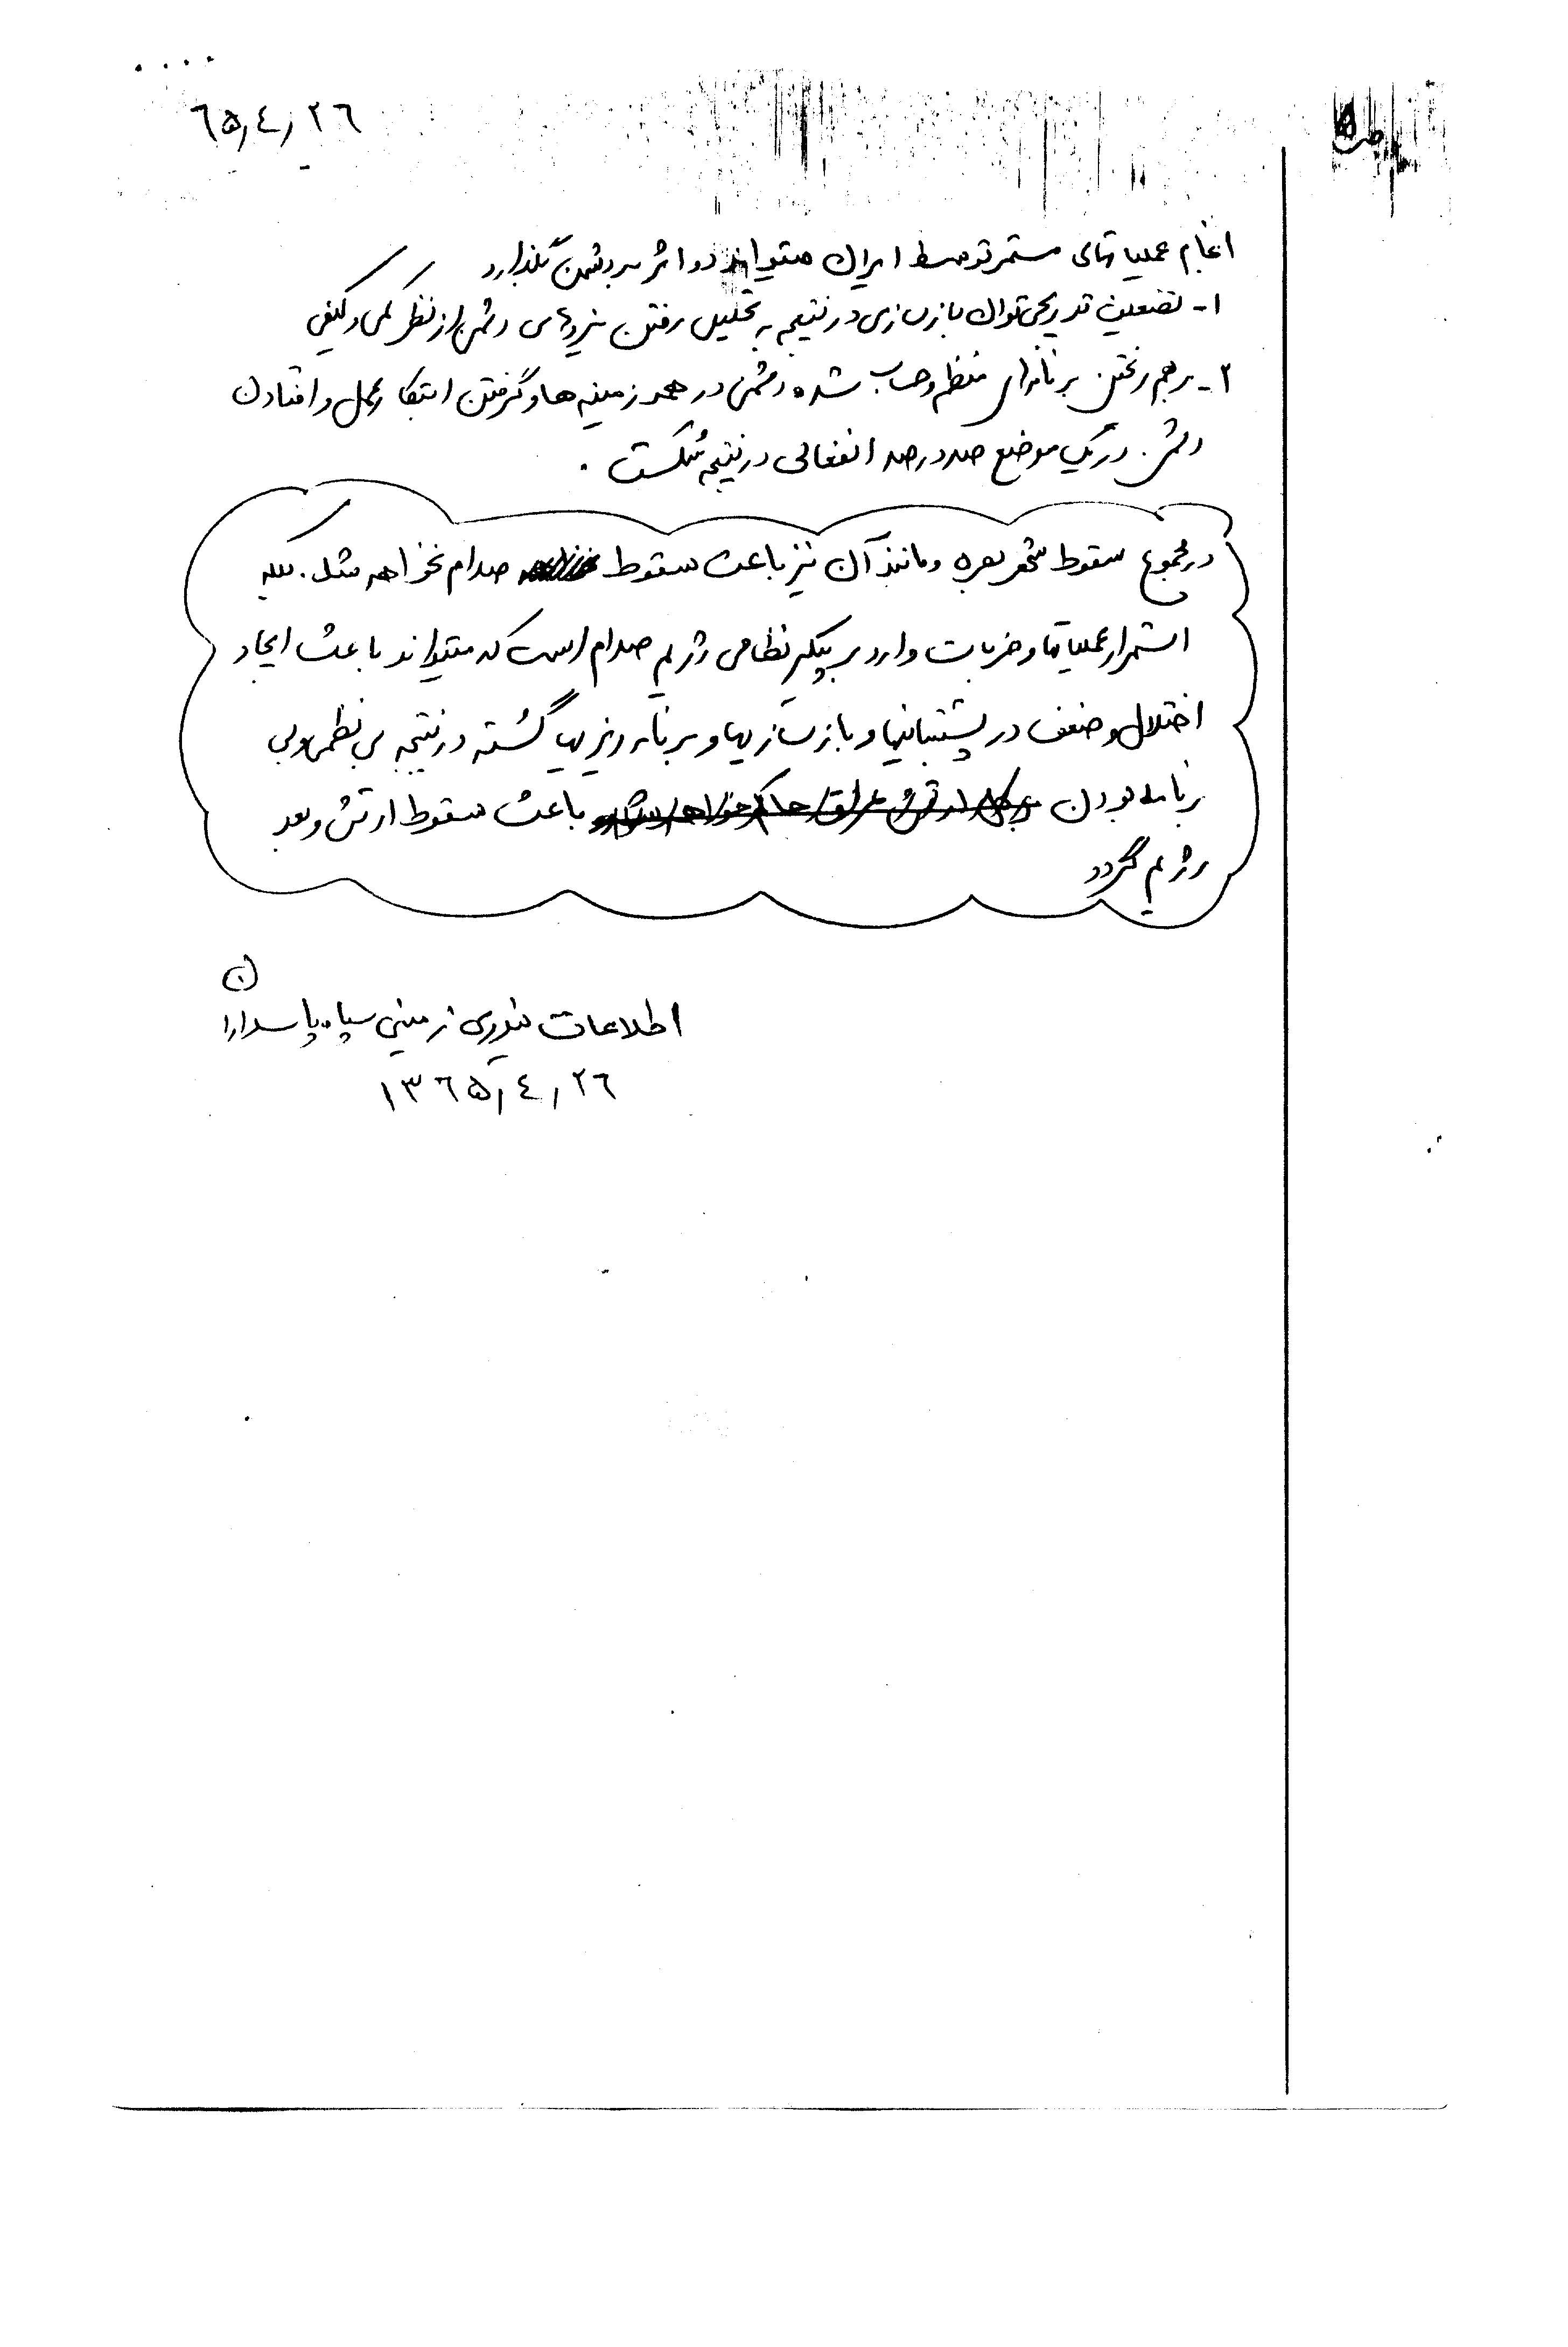 ٦٥,٤,٢٦
انجام عملیاتهای مستمر توسط ایران میتواند دو اثر بر دشمن بگذارد
١- تضعیف تدریجی توان بازسازی در نتیجه به تحلیل رفتن نیروهای دشمن از نظر کمی و کیفی
٢- برهم ریختن برنامه‌های منظم و حساب شده دشمن در همه زمینه ها و گرفتن ابتکار عمل و افتادن
دشمن در یک موضع صددرصد انفعالی در نتیجه شکست .
در مجموع سقوط شهر بصره و مانند آن نیز باعث سقوط صدام نخواهد شد. بلکه
استمرار عملیاتها و ضربات وارد بر پیکر نظامی رژیم صدام است که میتواند باعث ایجاد
اختلال و ضعف در پشتیبانیها و بازسازیها و برنامه ریزیها گشته در نتیجه بی نظمی و بی
برنامه بودن برای ارتش عراق حاکم خواهد شد و باعث سقوط ارتش و بعد
رژیم گردد
اطلاعات نیروی زمینی سپاه پاسداران
١٣٦٥,٤,٢٦